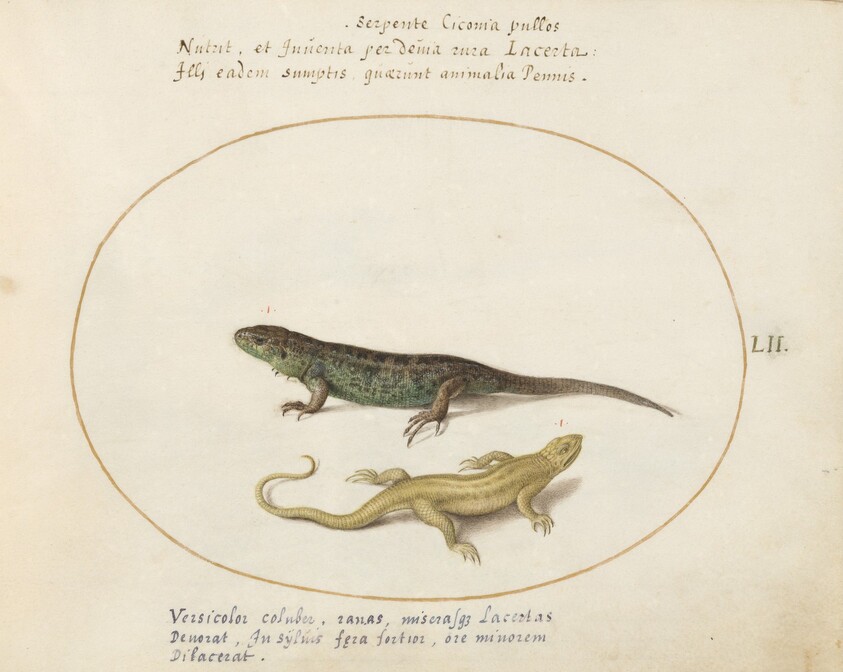 . Serpente Ciconia pullos
Nutrit, et Inuenta per deuia rura Lacerta:
Illi eadem sumptis quærunt animalia Pennis.
.1.
LII.
.1.
Versicolor coluber, ranas, miserasqȝ Lacertas
Deuorat, In syluis fęra fortior, ore minorem
Dilacerat.